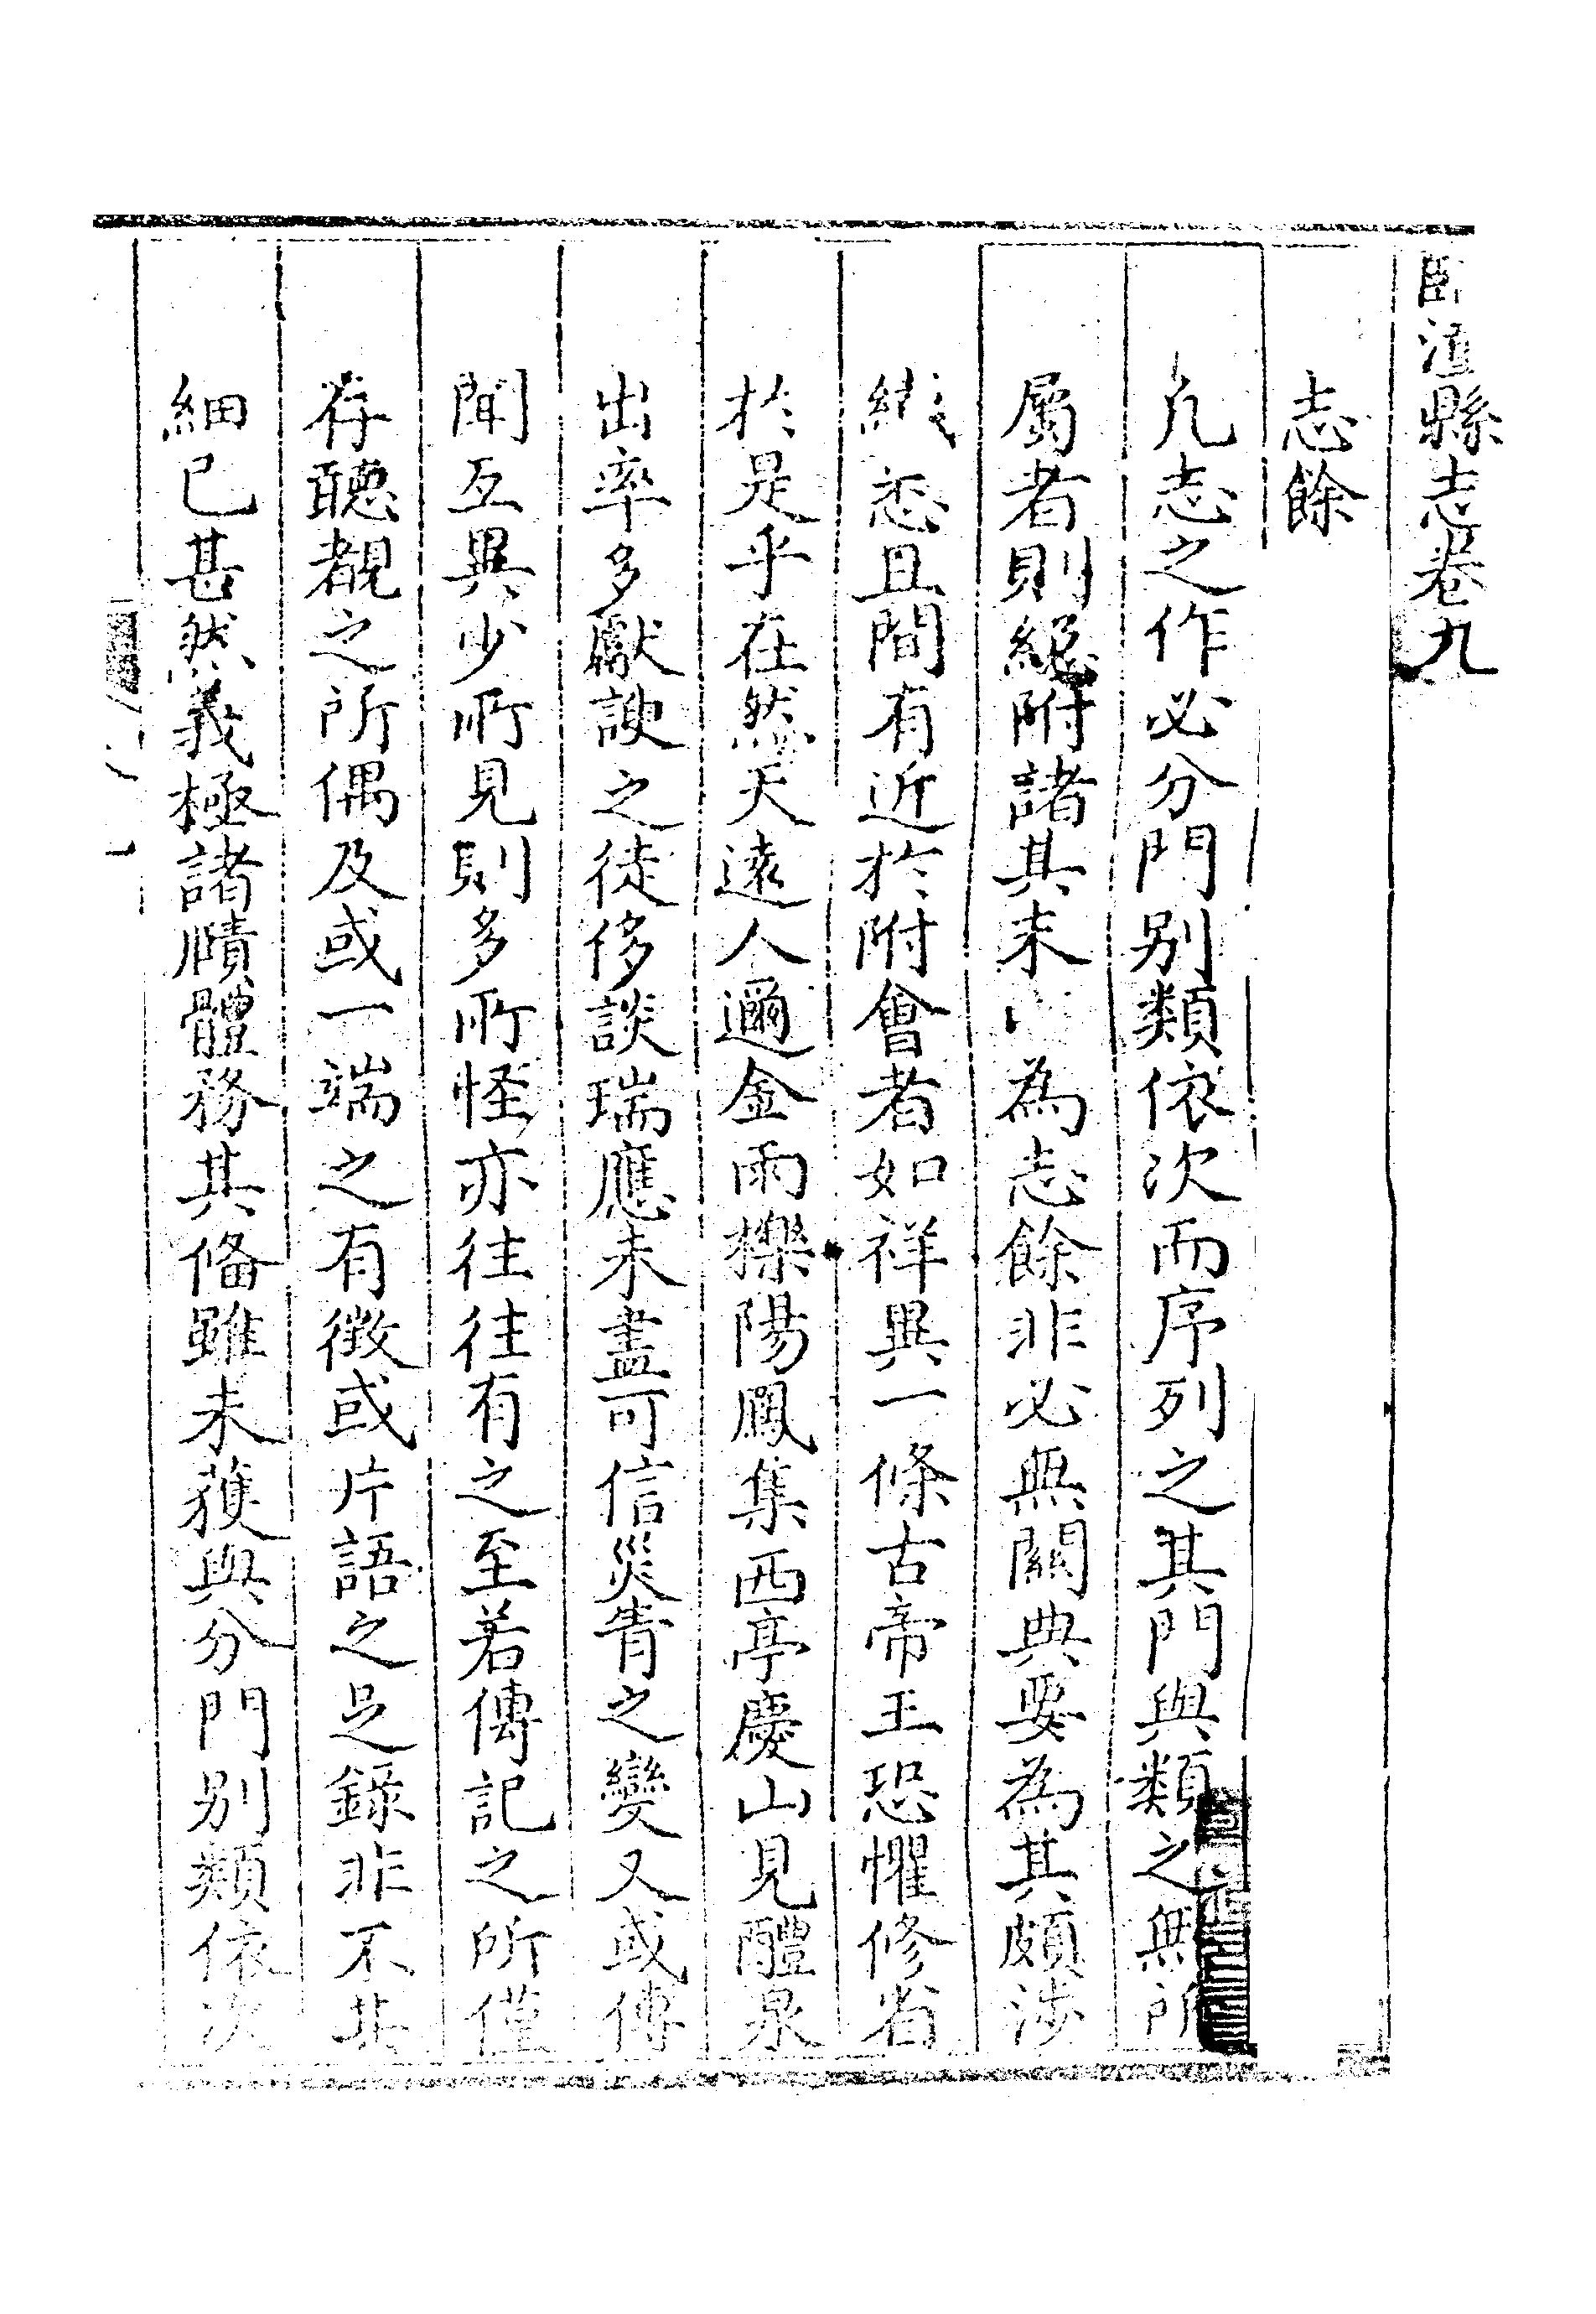 臨潼縣志卷九
志餘
凡志之作必分門别類依次而序列之其門與類之無所
屬者則總附諸其末以為志餘非必無關典要為其頗涉
纖悉且間有近於附會者如祥異一條古帝王恐懼修省
於是乎在然天遠人邇金雨櫟陽鳳集西亭慶山見醴泉
出率多獻諛之徒侈談瑞應未盡可信災眚之變又或傳
聞互異少所見則多所怪亦往往有之至若傳記之所僅
存聽覩之所偶及或一端之有徵或片語之足錄非不其
細已甚然義極諸賾體務其備雖未獲與分門别類依次